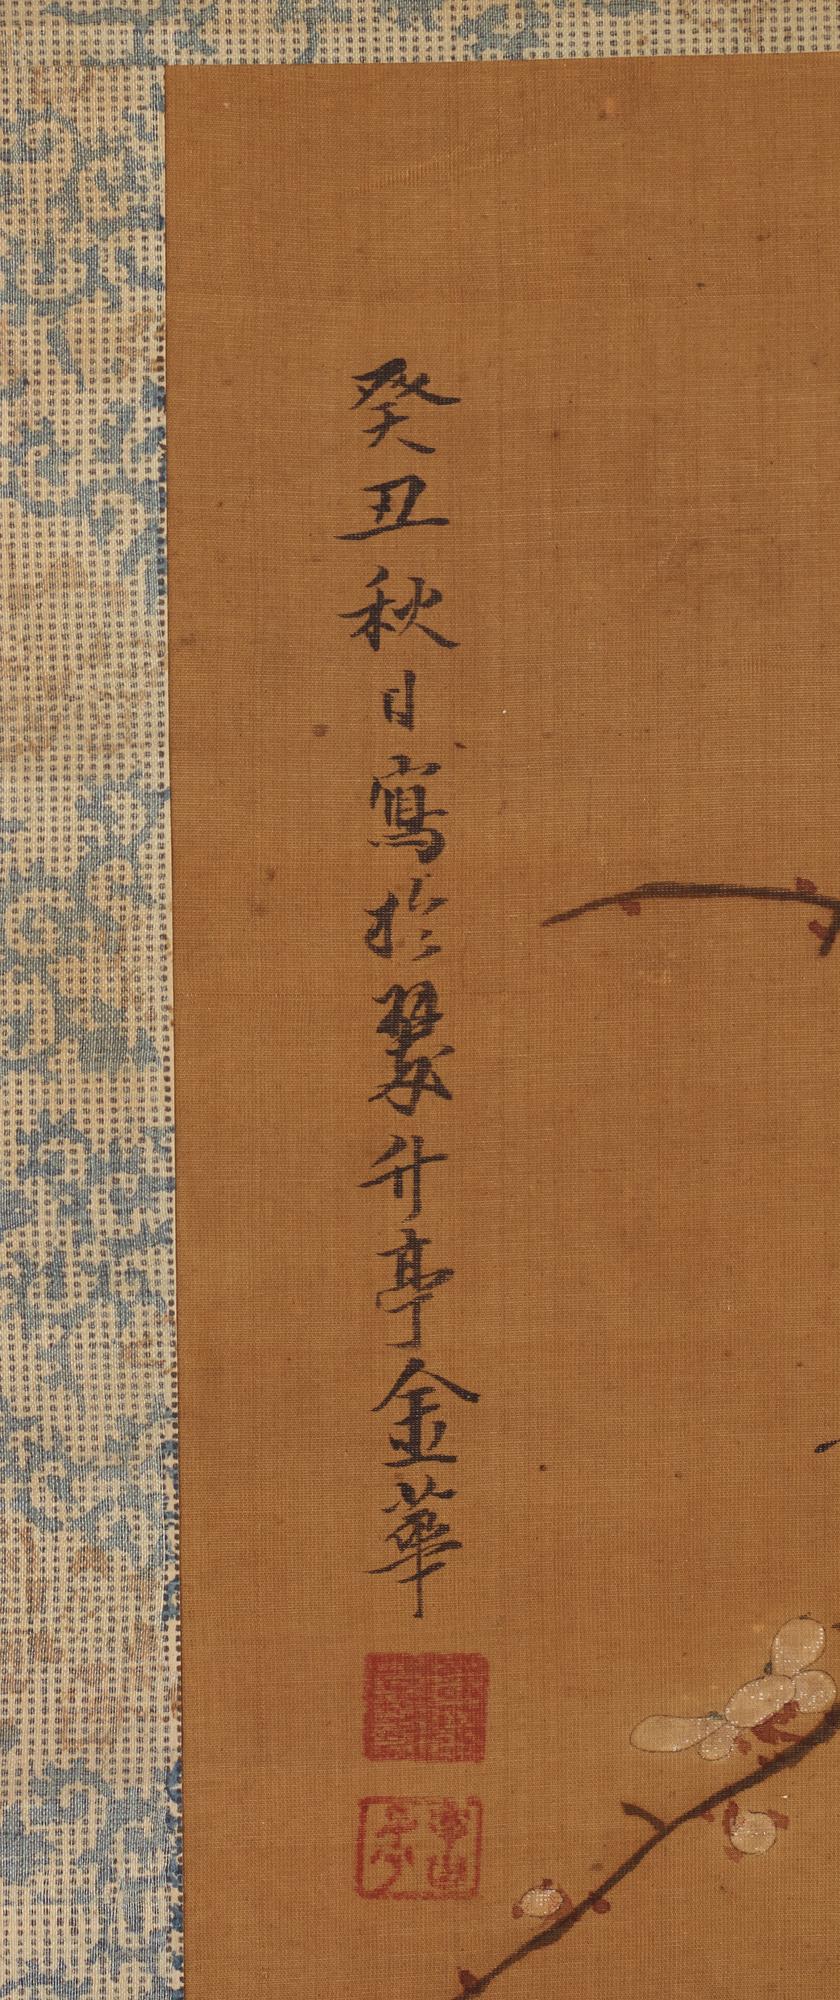 癸丑秋日寫於翠升亭金華